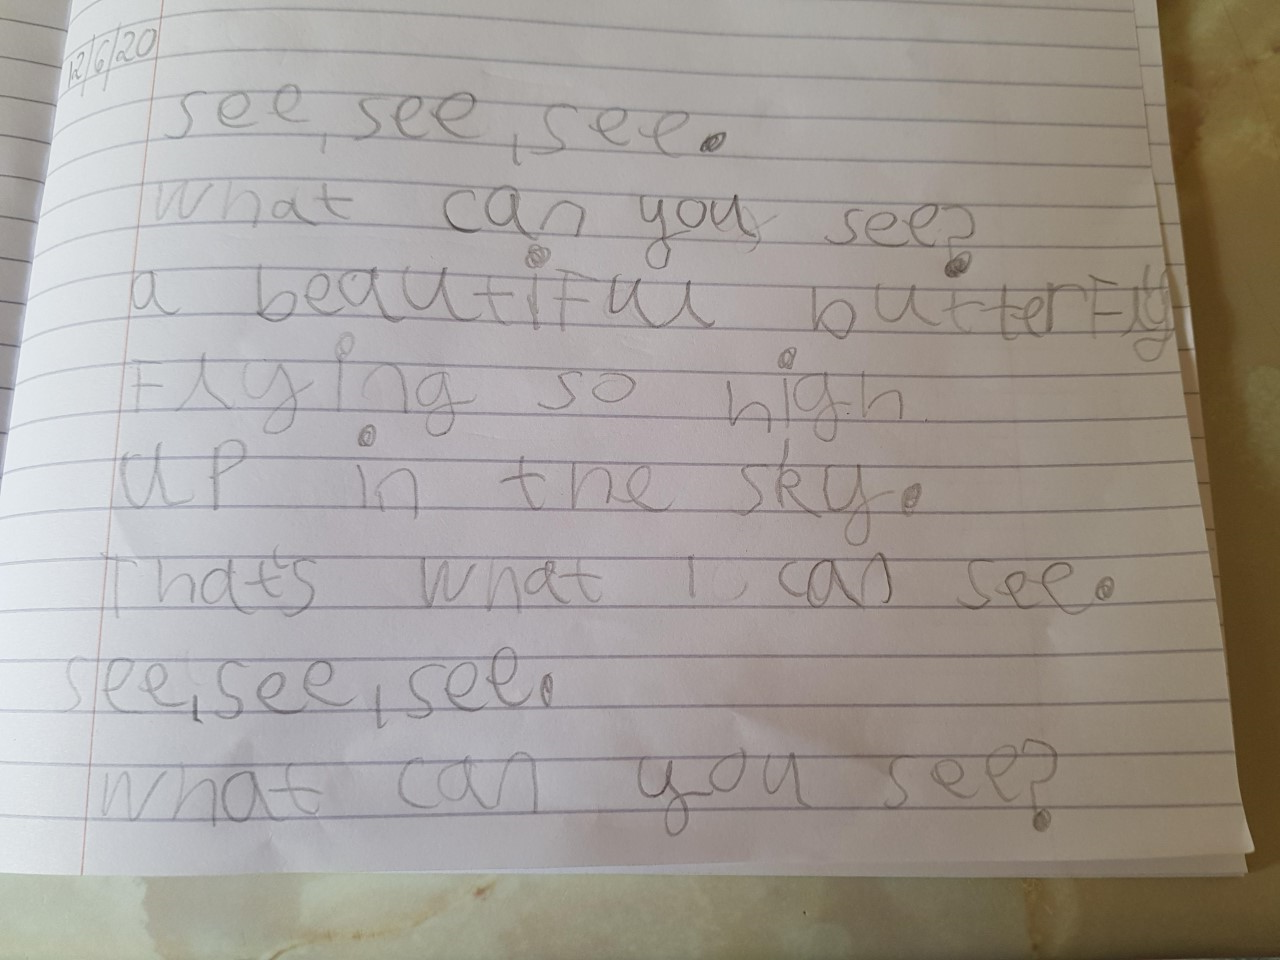 12/6/20
see, see, see.
What can you see?
a beautiful butterfly
Flying so high
up in the sky.
That's what I can see.
see, see, see.
What can you see?